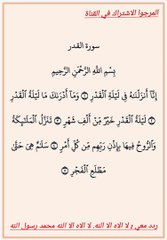 المرجوا الاشتراك في القناة
سورة القدر
بِسْمِ اللَّهِ الرَّحْمَٰنِ الرَّحِيمِ
إِنَّا أَنزَلْنَاهُ فِي لَيْلَةِ الْقَدْرِ ۝ وَمَا أَدْرَىٰكَ مَا لَيْلَةُ الْقَدْرِ
۝ لَيْلَةُ الْقَدْرِ خَيْرٌ مِّنْ أَلْفِ شَهْرٍ ۝ تَنَزَّلُ الْمَلَٰٓئِكَةُ
وَالرُّوحُ فِيهَا بِإِذْنِ رَبِّهِم مِّن كُلِّ أَمْرٍ ۝ سَلَٰمٌ هِيَ حَتَّىٰ
مَطْلَعِ الْفَجْرِ ۝
ردد معي : لا الاه الا الله. لا الاه الا الله محمد رسول الله